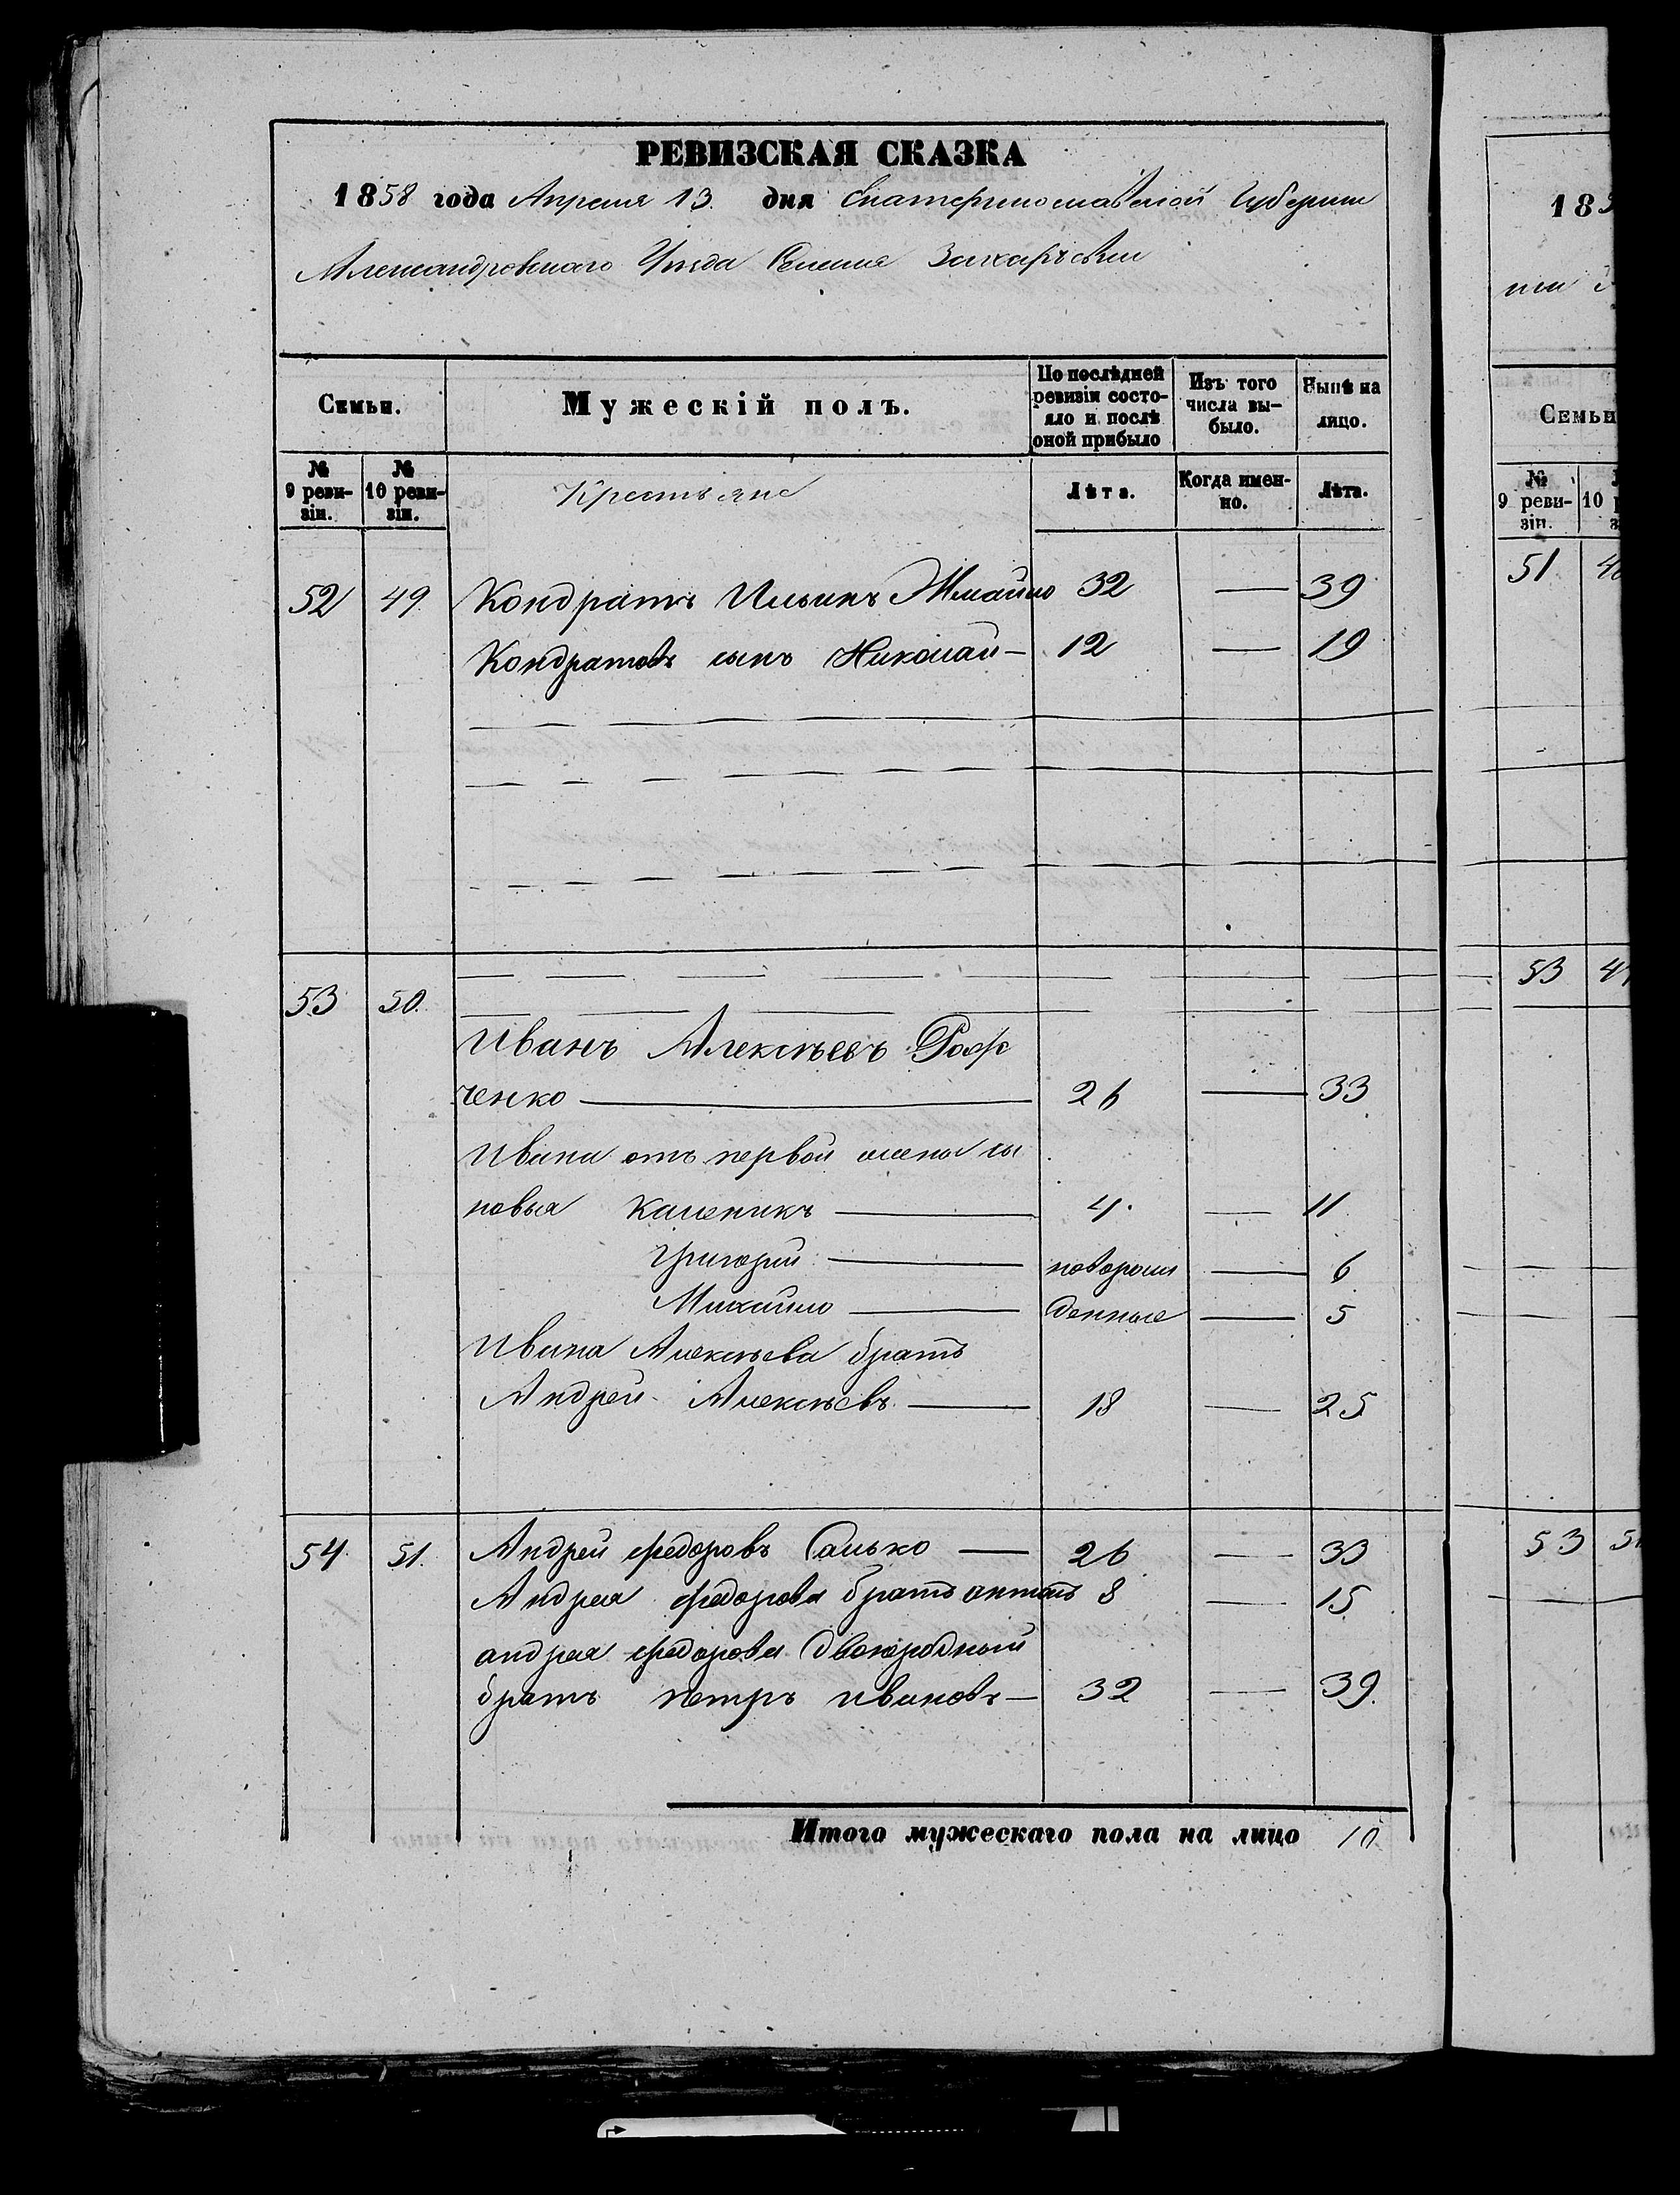 РЕВИЗСКАЯ СКАЗКА
1858 года Апреля 13. дня Екатеринославской Губернии
Александровскаго Уезда Селения
Семьи.
Мужескій полъ.
По послѣдней ревизіи состо-яло и послѣ оной прибыло
Изъ того числа вы-было.
Нынѣ на лицо.
№ 9 реви-зіи.
№ 10 реви-зіи.
Крестьяне
Лѣта.
Когда имен-но.
Лѣта.
52 49. Кондратъ Ильинъ 32 — 39
Кондратовъ сынъ Николай — 12 — 19
53 50.
Иванъ Алексѣевъ
ченко — 26 — 33
Ивана отъ первой жены сы
новья Каленикъ — 4. — 11
Григорий — новорож — 6
Михайло — денные — 5
Ивана Алексѣева братъ
Андрей Алексѣевъ — 18 — 25
54 51. Андрей Федоровъ Салько — 26 — 33
Андрея Федорова братъ 8 — 15
андрея Федорова двоюродный
братъ петръ ивановъ — 32 — 39.
Итого мужескаго пола на лицо 10
183
Семьи
№ 9 реви-зіи.
10
51
53
53